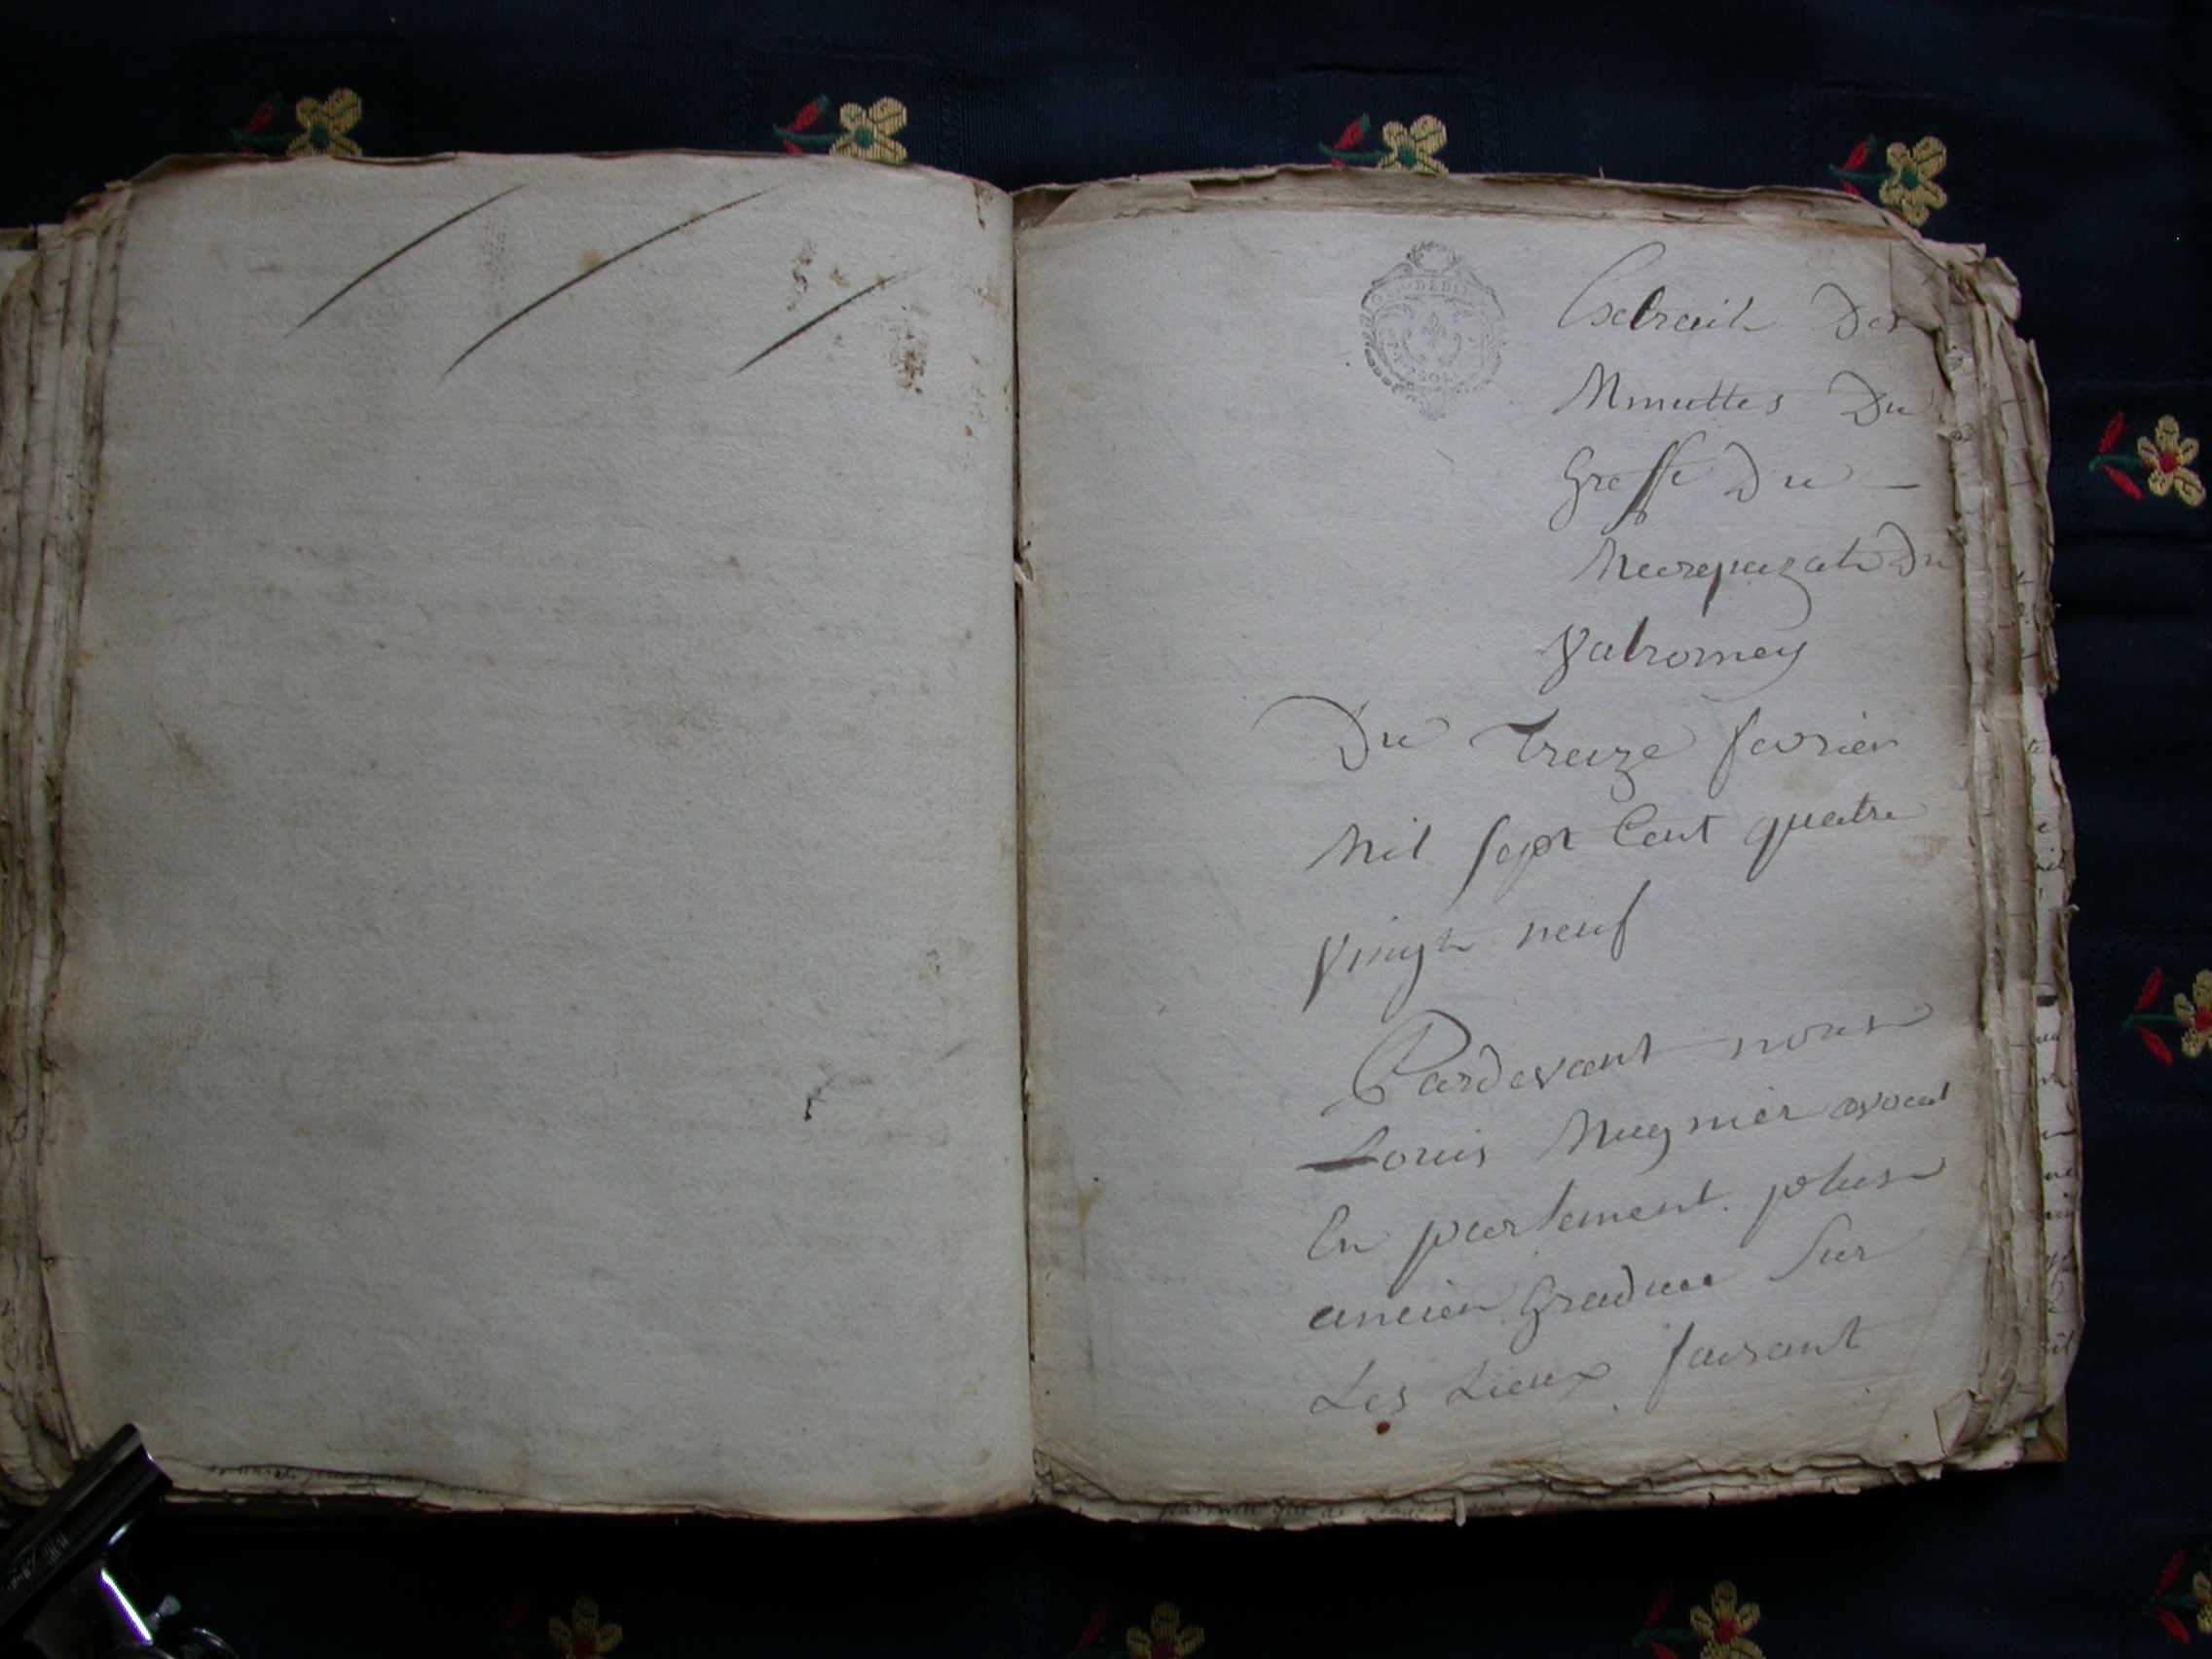 Extrait Des
Minuttes Du
Greffe Du
Marquizat Du
Valromey
Du Treize fevrier
Mil sept Cent quatre
Vingt neuf
Pardevant nous
Louis Mugnier avocat
En parlement plus
ancien Gradué Sur
Les Lieux faisant